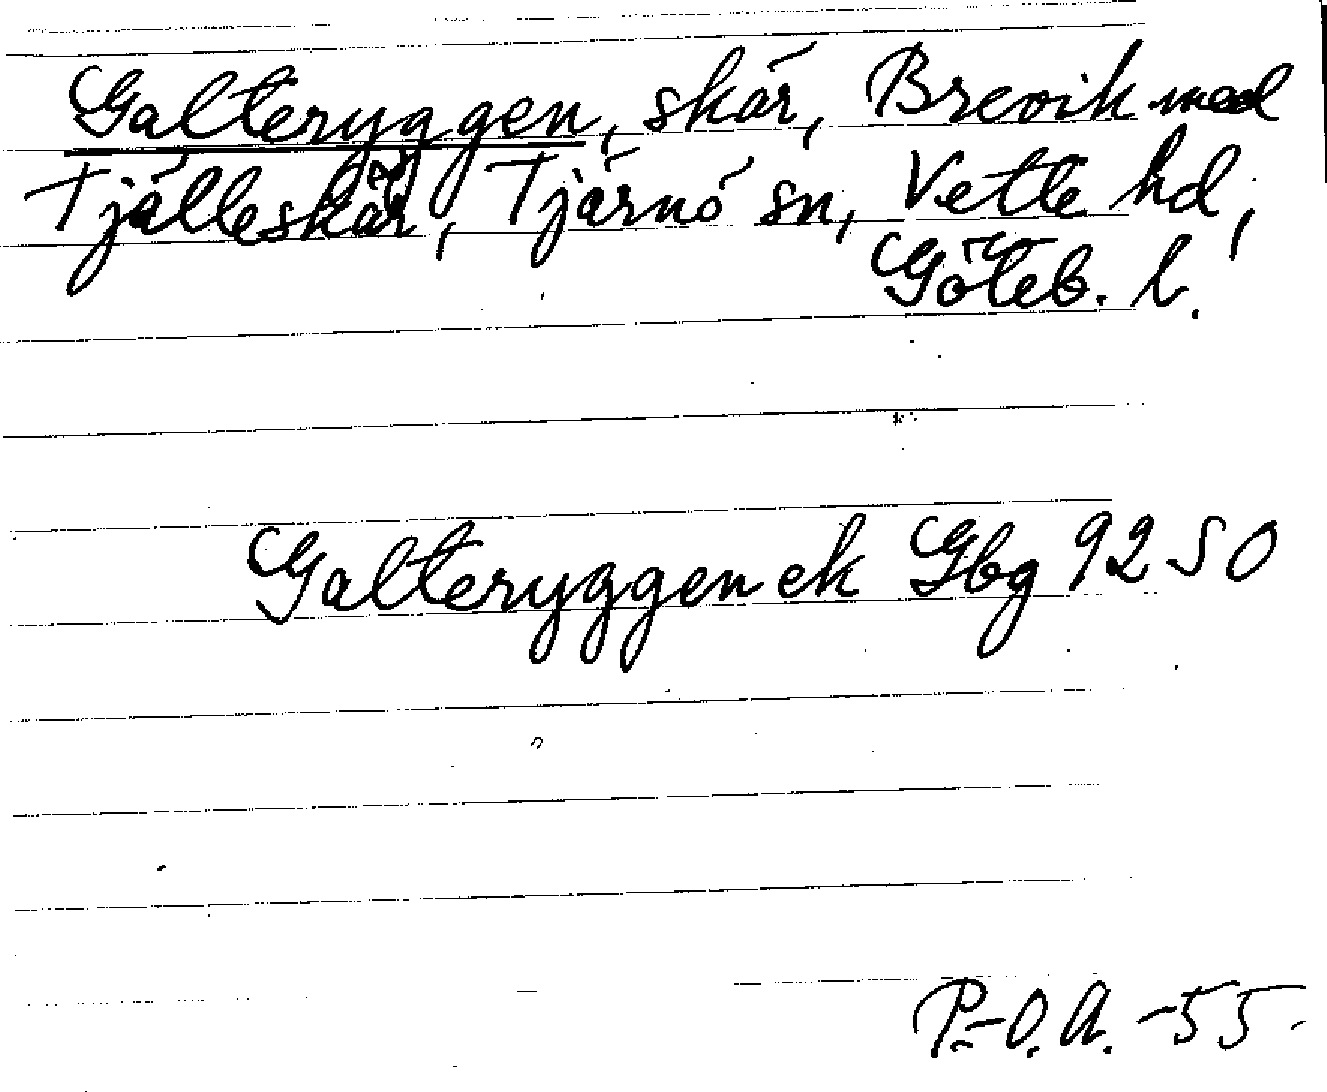 Galteryggen, skär, Brevik med
Tjälleskär, Tjärnö sn, Vette hd,
Göteb. l.
Galteryggen ek Gbg 9250
P.-O. A. -55.